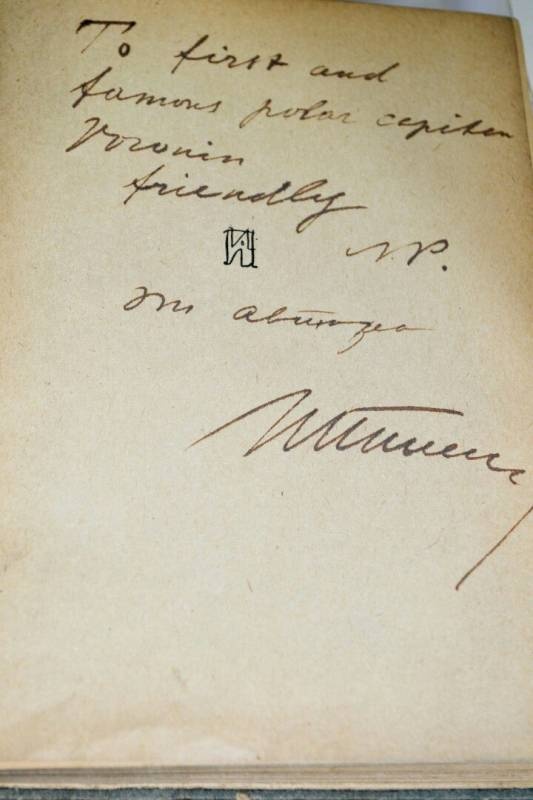 To first and
famous polar capiten
Voronin
friendly
N.P.
от автора